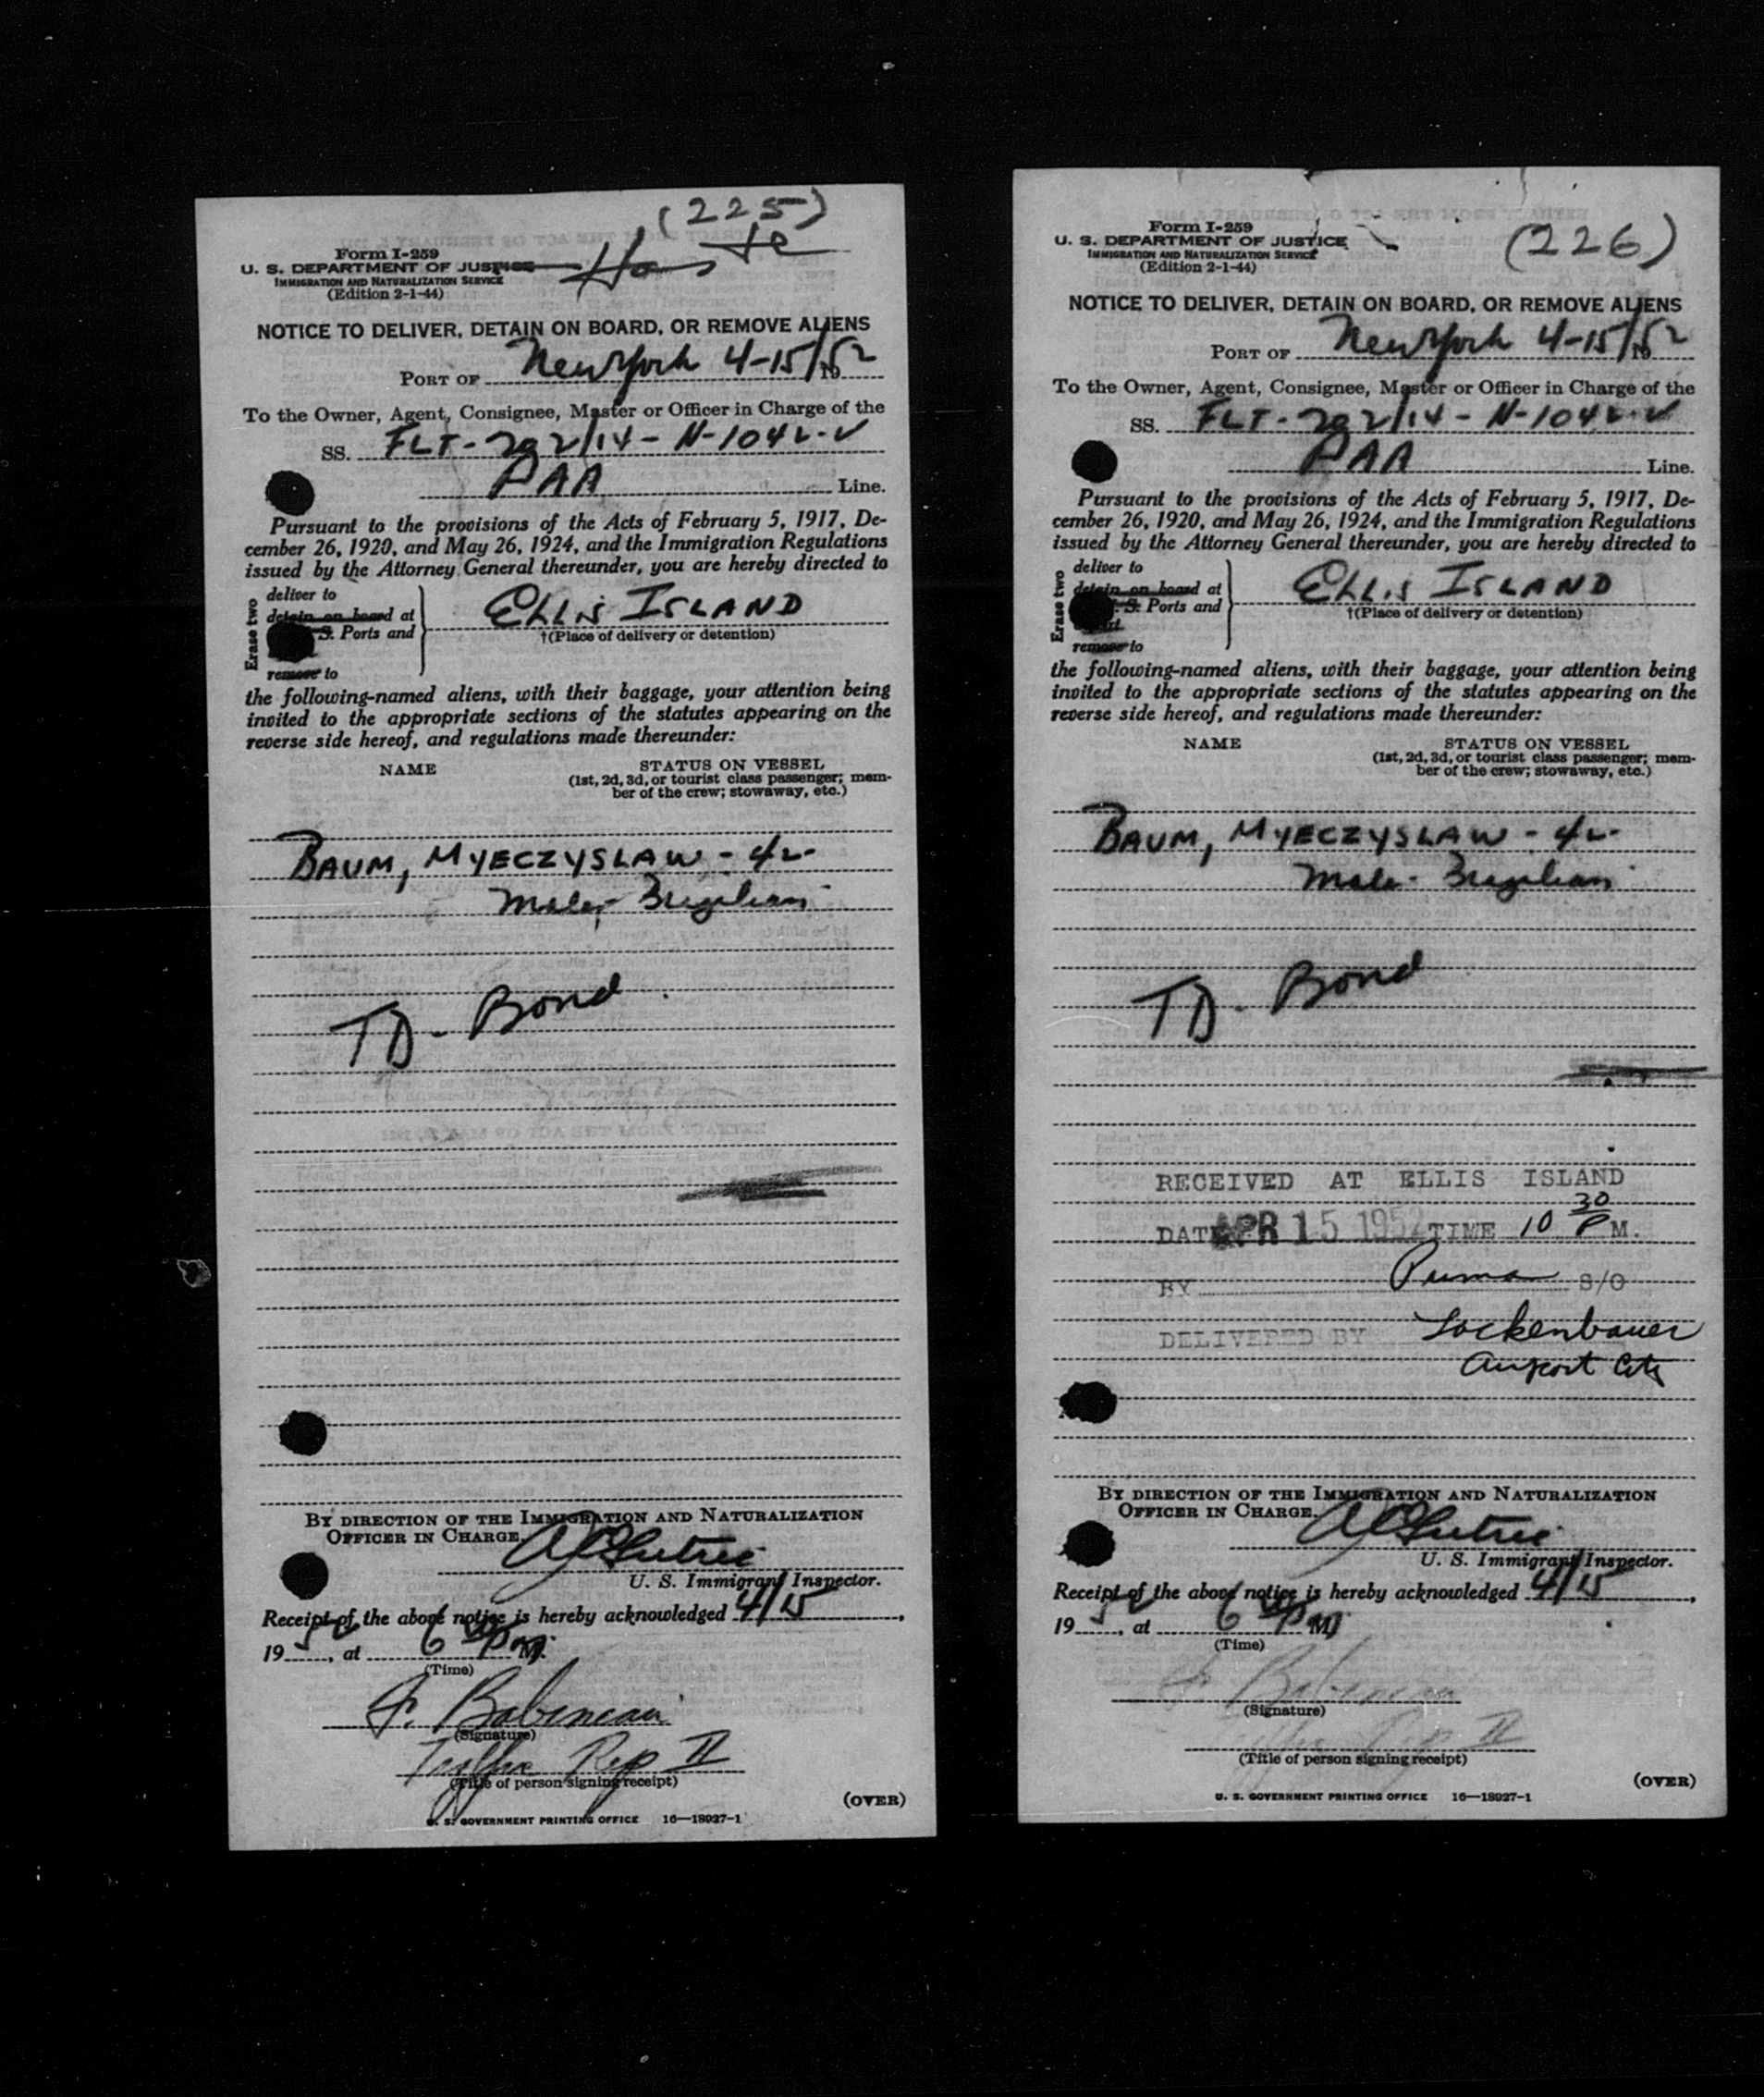 (225)
Form I-259
U. S. DEPARTMENT OF JUSTICE
IMMIGRATION AND NATURALIZATION SERVICE
(Edition 2-1-44)
NOTICE TO DELIVER, DETAIN ON BOARD, OR REMOVE ALIENS
PORT OF New York 4-15/52
To the Owner, Agent, Consignee, Master or Officer in Charge of the
SS. FLT-202/14-N-1042-V
PAA Line.
Pursuant to the provisions of the Acts of February 5, 1917, De-
cember 26, 1920, and May 26, 1924, and the Immigration Regulations
issued by the Attorney General thereunder, you are hereby directed to
Erase two
deliver to
detain on board at
S. Ports and
remove to
ELLIS ISLAND
†(Place of delivery or detention)
the following-named aliens, with their baggage, your attention being
invited to the appropriate sections of the statutes appearing on the
reverse side hereof, and regulations made thereunder:
NAME STATUS ON VESSEL
(1st, 2d, 3d, or tourist class passenger; mem-
ber of the crew; stowaway, etc.)
BAUM, MYECZYSLAW - 42-
Male - Brazilian
TD - Bond
BY DIRECTION OF THE IMMIGRATION AND NATURALIZATION
OFFICER IN CHARGE.
U. S. Immigrant Inspector.
Receipt of the above notice is hereby acknowledged 4/15,
1952, at 6 PM.
(Time)
J. Babineau
(Signature)
Traffic Rep II
(Title of person signing receipt)
(OVER)
U. S. GOVERNMENT PRINTING OFFICE 16—18027-1
(226)
Form I-259
U. S. DEPARTMENT OF JUSTICE
IMMIGRATION AND NATURALIZATION SERVICE
(Edition 2-1-44)
NOTICE TO DELIVER, DETAIN ON BOARD, OR REMOVE ALIENS
PORT OF New York 4-15/52
To the Owner, Agent, Consignee, Master or Officer in Charge of the
SS. FLT-202/14-N-1042-V
PAA Line.
Pursuant to the provisions of the Acts of February 5, 1917, De-
cember 26, 1920, and May 26, 1924, and the Immigration Regulations
issued by the Attorney General thereunder, you are hereby directed to
Erase two
deliver to
detain on board at
S. Ports and
remove to
ELLIS ISLAND
†(Place of delivery or detention)
the following-named aliens, with their baggage, your attention being
invited to the appropriate sections of the statutes appearing on the
reverse side hereof, and regulations made thereunder:
NAME STATUS ON VESSEL
(1st, 2d, 3d, or tourist class passenger; mem-
ber of the crew; stowaway, etc.)
BAUM, MYECZYSLAW - 42-
Male - Brazilian
TD - Bond
RECEIVED AT ELLIS ISLAND
DATE APR 15 1952 TIME 10 30 P M.
BY Puma S/O
DELIVERED BY Lockenbauer
Airport
BY DIRECTION OF THE IMMIGRATION AND NATURALIZATION
OFFICER IN CHARGE.
U. S. Immigrant Inspector.
Receipt of the above notice is hereby acknowledged 4/15,
1952, at 6 PM.
(Time)
J. Babineau
(Signature)
Rep II
(Title of person signing receipt)
(OVER)
U. S. GOVERNMENT PRINTING OFFICE 16—18027-1